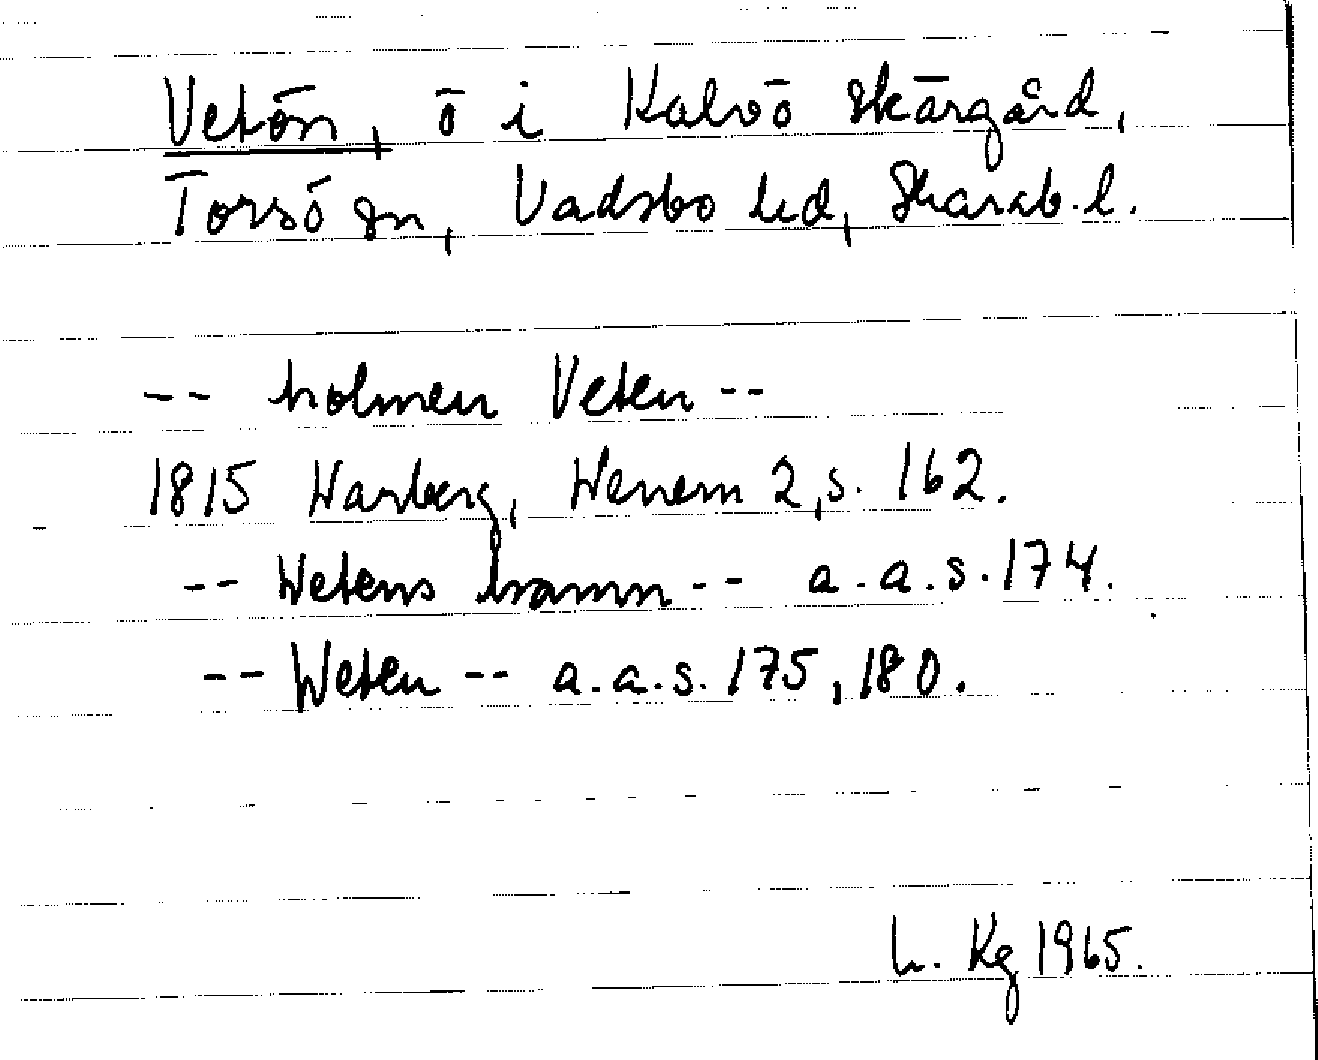 Vetön, ö i Kalvö skärgård,
Torsö sn, Vadsbo hd, Skarab. l.
-- holmen Veten --
1815 Warberg, Wenern 2, s. 162.
-- Wetens hamn -- a.a.s. 174.
-- Weten -- a.a.s. 175, 180.
L. Kg 1965.